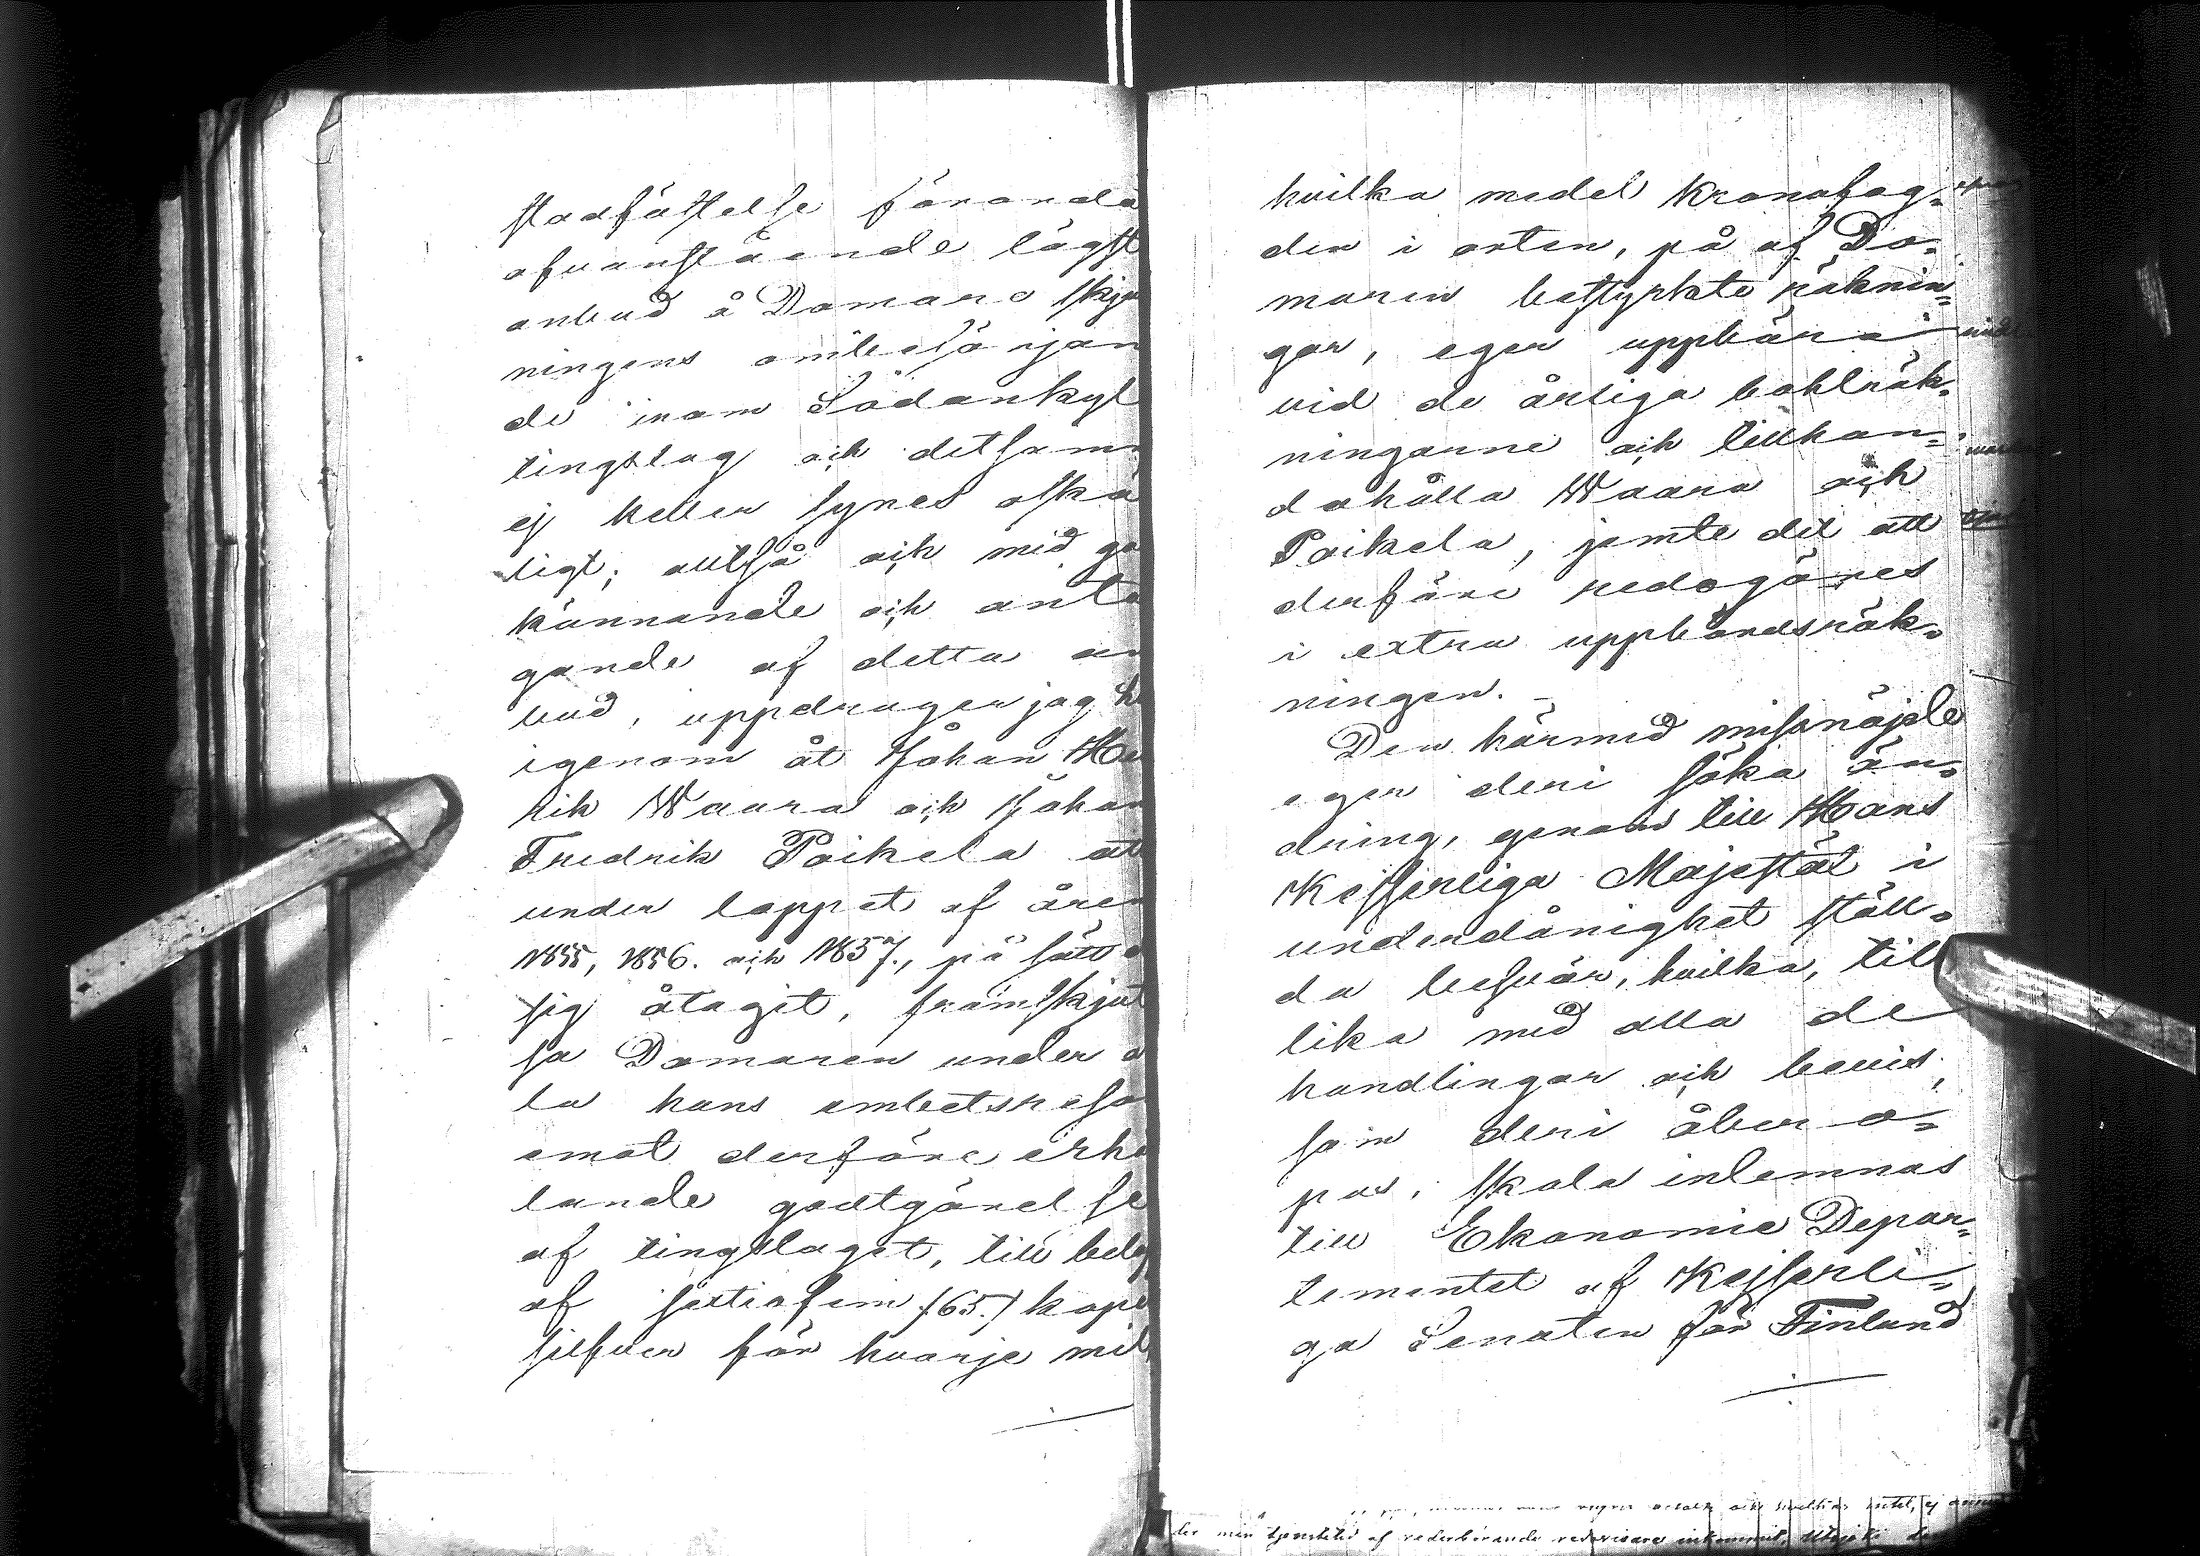 stadfästelse förorda
ofvanstående lägst
anbud å Domare skju
ningens ombesörjan
de inom Sodankyl
tingslag och detsam
ej heller synes oskä
ligt; alltså och med go
kännande och anta
gande af detta an
bud, uppdrager jag h
igenom åt Johan He
rik Waara och Johan
Fredrik Poikela att
under loppet af åren
1855, 1856. och 1857., på sätt
sig åtagit, framskjut
sa Domaren under a
la hans embetsreso
emot derföre erhå
lande godtgörelse
af tingslaget, till belo
af sextiofem (65.) kope
silfver för hvarje mil,
hvilka medel Kronofog-
den i orten, på af Do-
maren bestyrkte räknin-
gar, eger uppbära
vid de årliga bohlräk-
ningarne och tillhan-
dahålla Waara och
Poikela, jemte det att
derföre redogöres
i extra uppbördsräk-
ningen. –
Den härmed missnöjde
eger deri söka än-
dring, genom till Hans
Kejserliga Majestät i
underdånighet ställ-
da besvär, hvilka, till
lika med alla de
handlingar och bevis,
som deri åbero-
pas, skola inlemnas
till Ekonomie Depar-
tementet af Kejserli-
ga Senaten för Finland
der min tjenstetid af vederbörande redovisare inkommit,